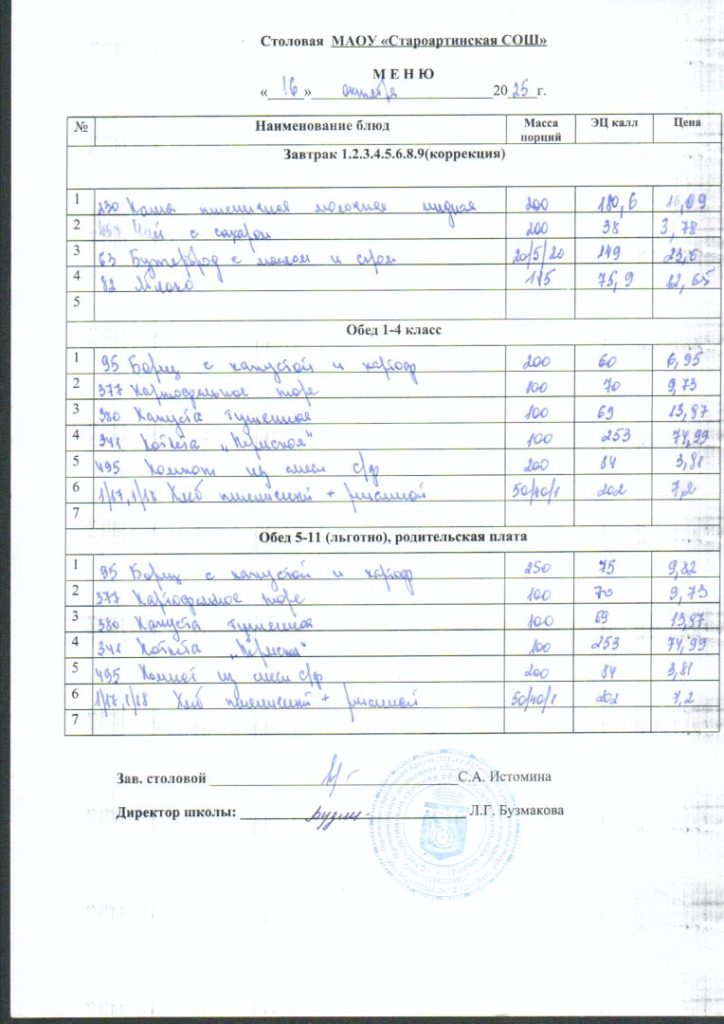 Столовая МАОУ «Староартинская СОШ»
М Е Н Ю
« 16 » октября 2025 г.
№ Наименование блюд Масса порций ЭЦ калл Цена
Завтрак 1.2.3.4.5.6.8.9(коррекция)
1 230 Каша пшеничная молочная жидкая 200 180,6 16,09
2 457 Чай с сахаром 200 38 3,78
3 63 Бутерброд с маслом и сыром 20/5/20 149 23,6
4 82 Яблоко 115 75,9 12,65
5
Обед 1-4 класс
1 95 Борщ с капустой и картоф 200 60 6,95
2 377 Картофельное пюре 100 70 9,73
3 380 Капуста тушенная 100 69 13,97
4 341 Котлета „Пермская" 100 253 74,99
5 495 Компот из смеси с/ф 200 84 3,81
6 1/17,1/18 Хлеб пшеничный + ржаной 50/40/1 202 7,2
7
Обед 5-11 (льготно), родительская плата
1 95 Борщ с капустой и картоф 250 75 9,82
2 377 Картофельное пюре 100 70 9,73
3 380 Капуста тушенная 100 69 13,97
4 341 Котлета „Пермская" 100 253 74,99
5 495 Компот из смеси с/ф 200 84 3,81
6 1/17,1/18 Хлеб пшеничный + ржаной 50/40/1 202 7,2
7
Зав. столовой С.А. Истомина
Директор школы: Л.Г. Бузмакова